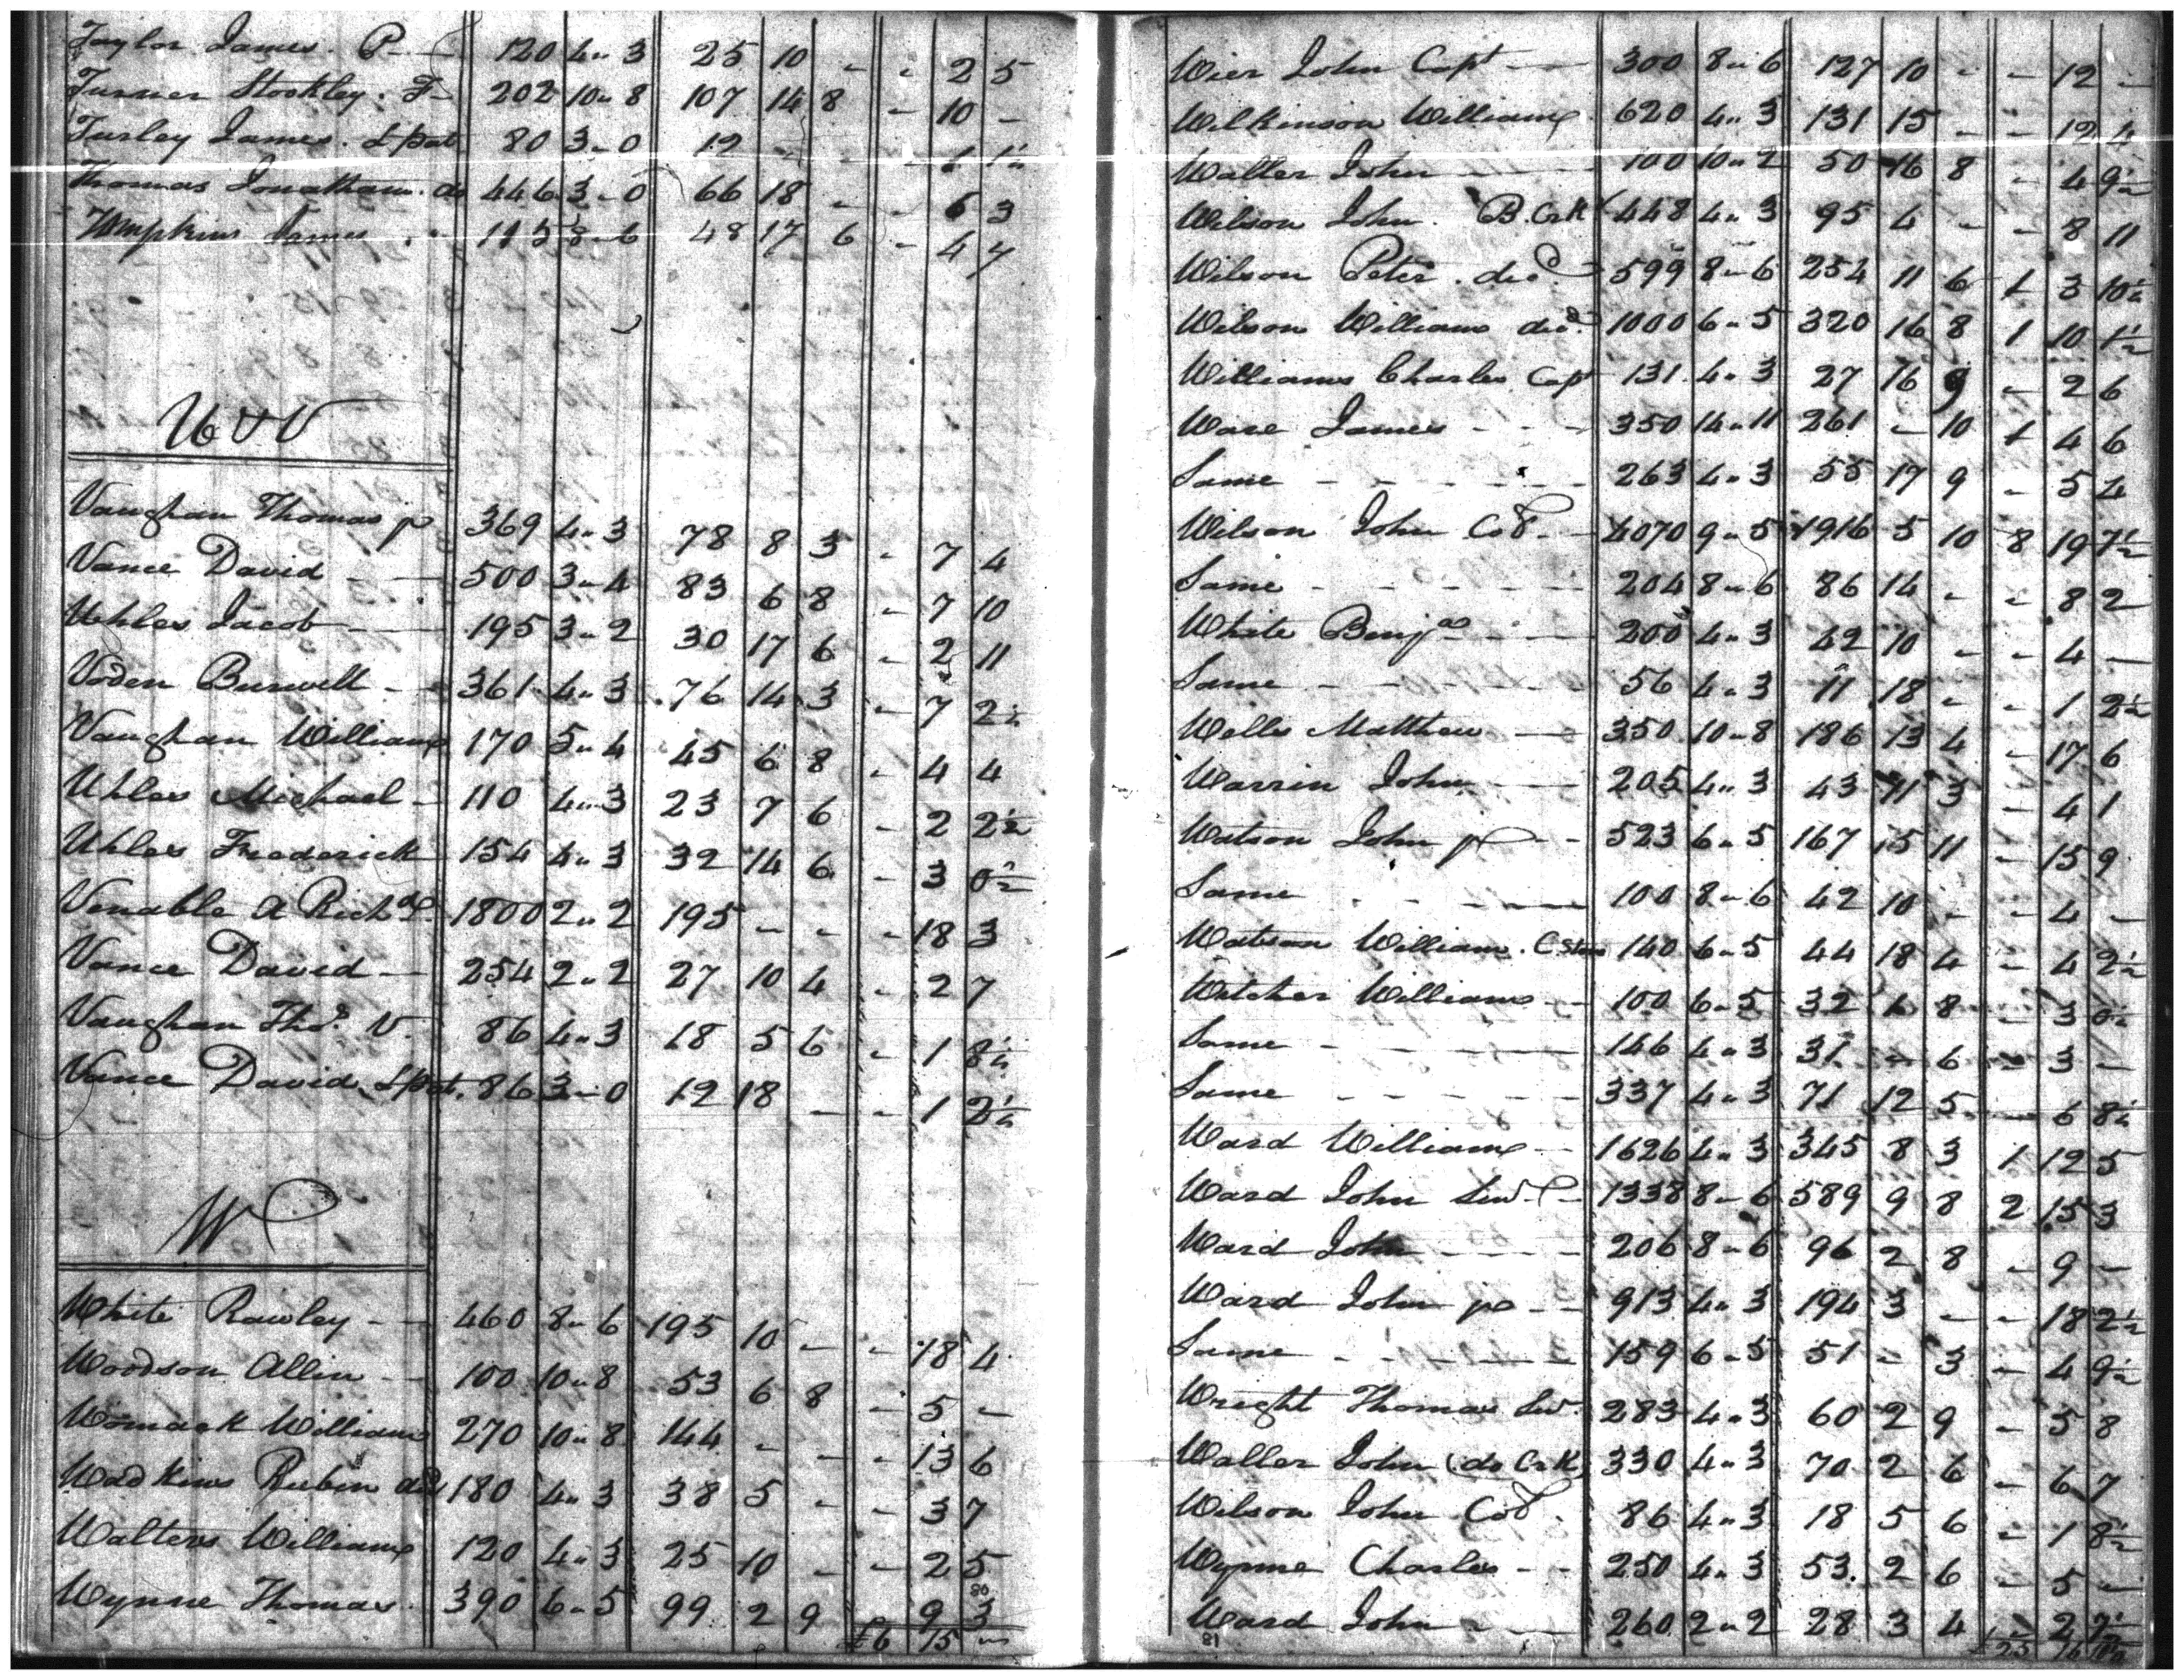 Taylor James. P — 120 4 " 3 25 10 - - 2 5
Turner Stockley. F - 202 10 " 8 107 14 8 - 10 -
Turley James. 80 3 - 0 12 - - - 1 1½
Thomas Jonathan. do 446 3 - 0 66 18 - - 6 3
Tompkins James 115 8 - 6 48 17 6 - 4 7
U & V
Vaughan Thomas jr 369 4 " 3 78 8 3 - 7 4
Vance David - — 500 3 " 4 83 6 8 - 7 10
Uhles Jacob — 195 3 " 2 30 17 6 - 2 11
Voden Burwell - - 361 4 " 3 76 14 3 - 7 2½
Vaughan William 170 5 " 4 45 6 8 - 4 4
Uhles Michael - 110 4 " 3 23 7 6 - 2 2½
Uhles Frederick 154 4 " 3 32 14 6 - 3 0½
Venable A Richd. 1800 2 " 2 195 - - - 18 3
Vance David — 254 2 " 2 27 10 4 - 2 7
Vaughan Thos. V. 86 4 " 3 18 5 6 - 1 8½
Vance David 86 3 - 0 12 18 - - 1 2½
W
White Rawley - - 460 8 " 6 195 10 - - 18 4
Woodson Allin - - 100 10 " 8 53 6 8 - 5 -
Womack William 270 10 " 8 144 - - - 13 6
Wadkins Rubin 180 4 " 3 38 5 - - 3 7
Walters William 120 4 " 3 25 10 - - 2 5
80
Wynne Thomas. 390 6 " 5 99 2 9 9 3
£6 15 "
Wier John Capt — 300 8 " 6 127 10 - - 12 -
Wilkinson William 620 4 " 3 131 15 - - 12 4
Waller John — 100 10 " 2 50 16 8 - 4 9½
Wilson John. B. Crk 448 4 " 3 95 4 - - 8 11
Wilson Peter. decd 599 8 " 6 254 11 6 1 3 10½
Wilson William decd. 1000 6 " 5 320 16 8 1 10 1½
Williams Charles Capt 131 4 " 3 27 16 9 - 2 6
Ware James - - - 350 14 " 11 261 - 10 1 4 6
Same - - - - - 263 4 " 3 55 17 9 - 5 4
Wilson John Col. - 4070 9 " 5 1916 5 10 8 19 7½
Same - - - - - 204 8 " 6 86 14 - - 8 2
White Benja - - — 200 4 " 3 42 10 - - 4 —
Same - - - - - 56 4 " 3 11 18 - - 1 2½
Wells Matthew — 350 10 " 8 186 13 4 - 17 6
Warrin John — 205 4 " 3 43 11 3 - 4 1
Watson John jr - - 523 6 " 5 167 15 11 - 15 9
Same - - — 100 8 " 6 42 10 - - 4 -
Watson William. 140 6 " 5 44 18 4 - 4 2½
Witcher William - - 100 6 " 5 32 1 8 - 3 0½
Same - - - - 146 4 " 3 31 - 6 - 3 -
Same - - - - - 337 4 " 3 71 12 5 - 6 8½
Ward William - - 1626 4 " 3 345 8 3 1 12 5
Ward John Senr - 1338 8 " 6 589 9 8 2 15 3
Ward John - - - - 206 8 " 6 96 2 8 - 9 -
Ward John jr - - 913 4 " 3 194 3 - - 18 2½
Same - - - - 159 6 " 5 51 - 3 - 4 9½
Wright Thomas Senr. 283 4 " 3 60 2 9 - 5 8
Waller John (do Crk) 330 4 " 3 70 2 6 - 6 7
Wilson John Col. 86 4 " 3 18 5 6 - 1 8½
Wynne Charles - - 250 4 " 3 53 2 6 - 5 -
Ward John - - 260 2 " 2 28 3 4 - 2 7½
81